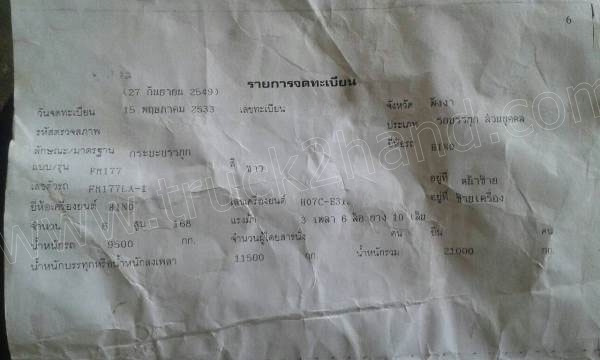 6
รายการจดทะเบียน
(27 กันยายน 2549)
วันจดทะเบียน 15 พฤษภาคม 2533 เลขทะเบียน จังหวัด พังงา
รหัสตรวจสภาพ ประเภท รถบรรทุก ส่วนบุคคล
ลักษณะ/มาตรฐาน กระบะบรรทุก ยี่ห้อรถ HINO
แบบ/รุ่น FM177 สี ขาว
เลขตัวรถ FM177LA-1 อยู่ที่ หน้าซ้าย
ยี่ห้อเครื่องยนต์ HINO เลขเครื่องยนต์ H07C-E31 อยู่ที่ ซ้ายเครื่อง
จำนวน 6 สูบ 168 แรงม้า 3 เพลา 6 ล้อ ยาง 10 เส้น
น้ำหนักรถ 9500 กก. จำนวนผู้โดยสารนั่ง คน ยืน คน
น้ำหนักบรรทุกหรือน้ำหนักลงเพลา 11500 กก. น้ำหนักรวม 21000 กก.
www.truck2hand.com